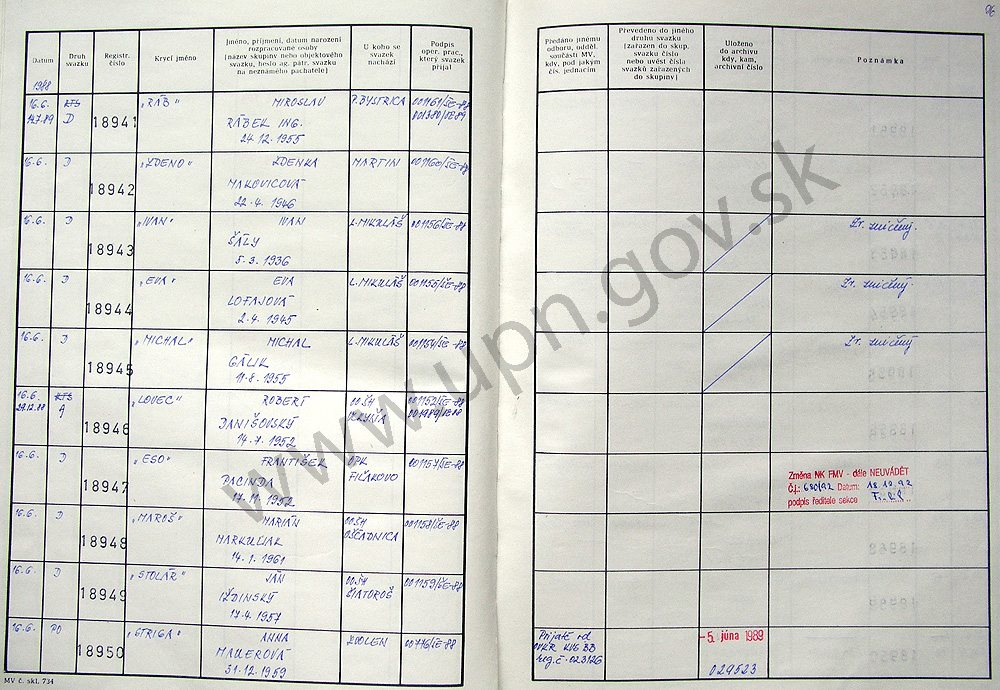 96
Datum
Druh
svazku
Registr.
číslo
Krycí jméno
Jméno, příjmení, datum narození
rozpracované osoby
(název skupiny nebo objektového
svazku, heslo ag. pátr. svazku
na neznámého pachatele)
U koho se
svazek
nachází
Podpis
oper. prac.,
který svazek
přijal
Předáno jinému
odboru, udděl.
součásti MV,
kdy, pod jakým
čís. jednacím
Převedeno do jiného
druhu svazku
(zařazen do skup.
svazku číslo
nebo uvést čísla
svazků zařazených
do skupiny)
Uloženo
do archivu
kdy, kam,
archivní číslo
Poznámka
1988
16.6. KTS 18941 „RÁB" MIROSLAV P. BYSTRICA 001161/ŠE-88
14.7.89 D RÁBEK ING. 001380/ŠE-89
24.12.1955
16.6. D 18942 „ZDENO" ZDENKA MARTIN 001160/ŠE-88
MAKOVICOVÁ
22.4.1946
16.6. D 18943 „IVAN" IVAN L. MIKULÁŠ 001156/ŠE-88 Zr. zničený.
ŠÁLY
5.3.1936
16.6. D 18944 „EVA" EVA L. MIKULÁŠ 001155/ŠE-88 Zr. zničený.
LOFAJOVÁ
2.4.1945
16.6. D 18945 „MICHAL" MICHAL L. MIKULÁŠ 001154/ŠE-88 Zr. zničený
GÁLIK
11.8.1955
16.6. KTS 18946 „LOVEC" ROBERT OOŠH 001152/ŠE-88
29.12.88 A DANIŠOVSKÝ 001989/ŠE-88
14.7.1952
16.6. D 18947 „ESO" FRANTIŠEK OPK 001157/ŠE-88
PACINDA FIĽAKOVO
17.11.1952
Změna NK FMV - dále NEUVÁDĚT
Č.j.: 680/92 Datum: 18.10.92
podpis ředitele sekce
16.6. D 18948 „MAROŠ" MARIÁN OOŠH 001158/ŠE-88
MARKULIAK OŠČADNICA
14.1.1961
16.6. D 18949 „STOLÁR" JÁN OOŠH 001159/ŠE-88
IŽDINSKÝ ŠIATOROŠ
17.4.1957
16.6. PO 18950 „STRIGA" ANNA ZVOLEN 00776/ŠE-88
MAUEROVÁ
31.12.1959
Prijaté od
OVKR KVG BB
reg.č. 023126
-5. júna 1989
029523
MV č. skl. 734
www.upn.gov.sk